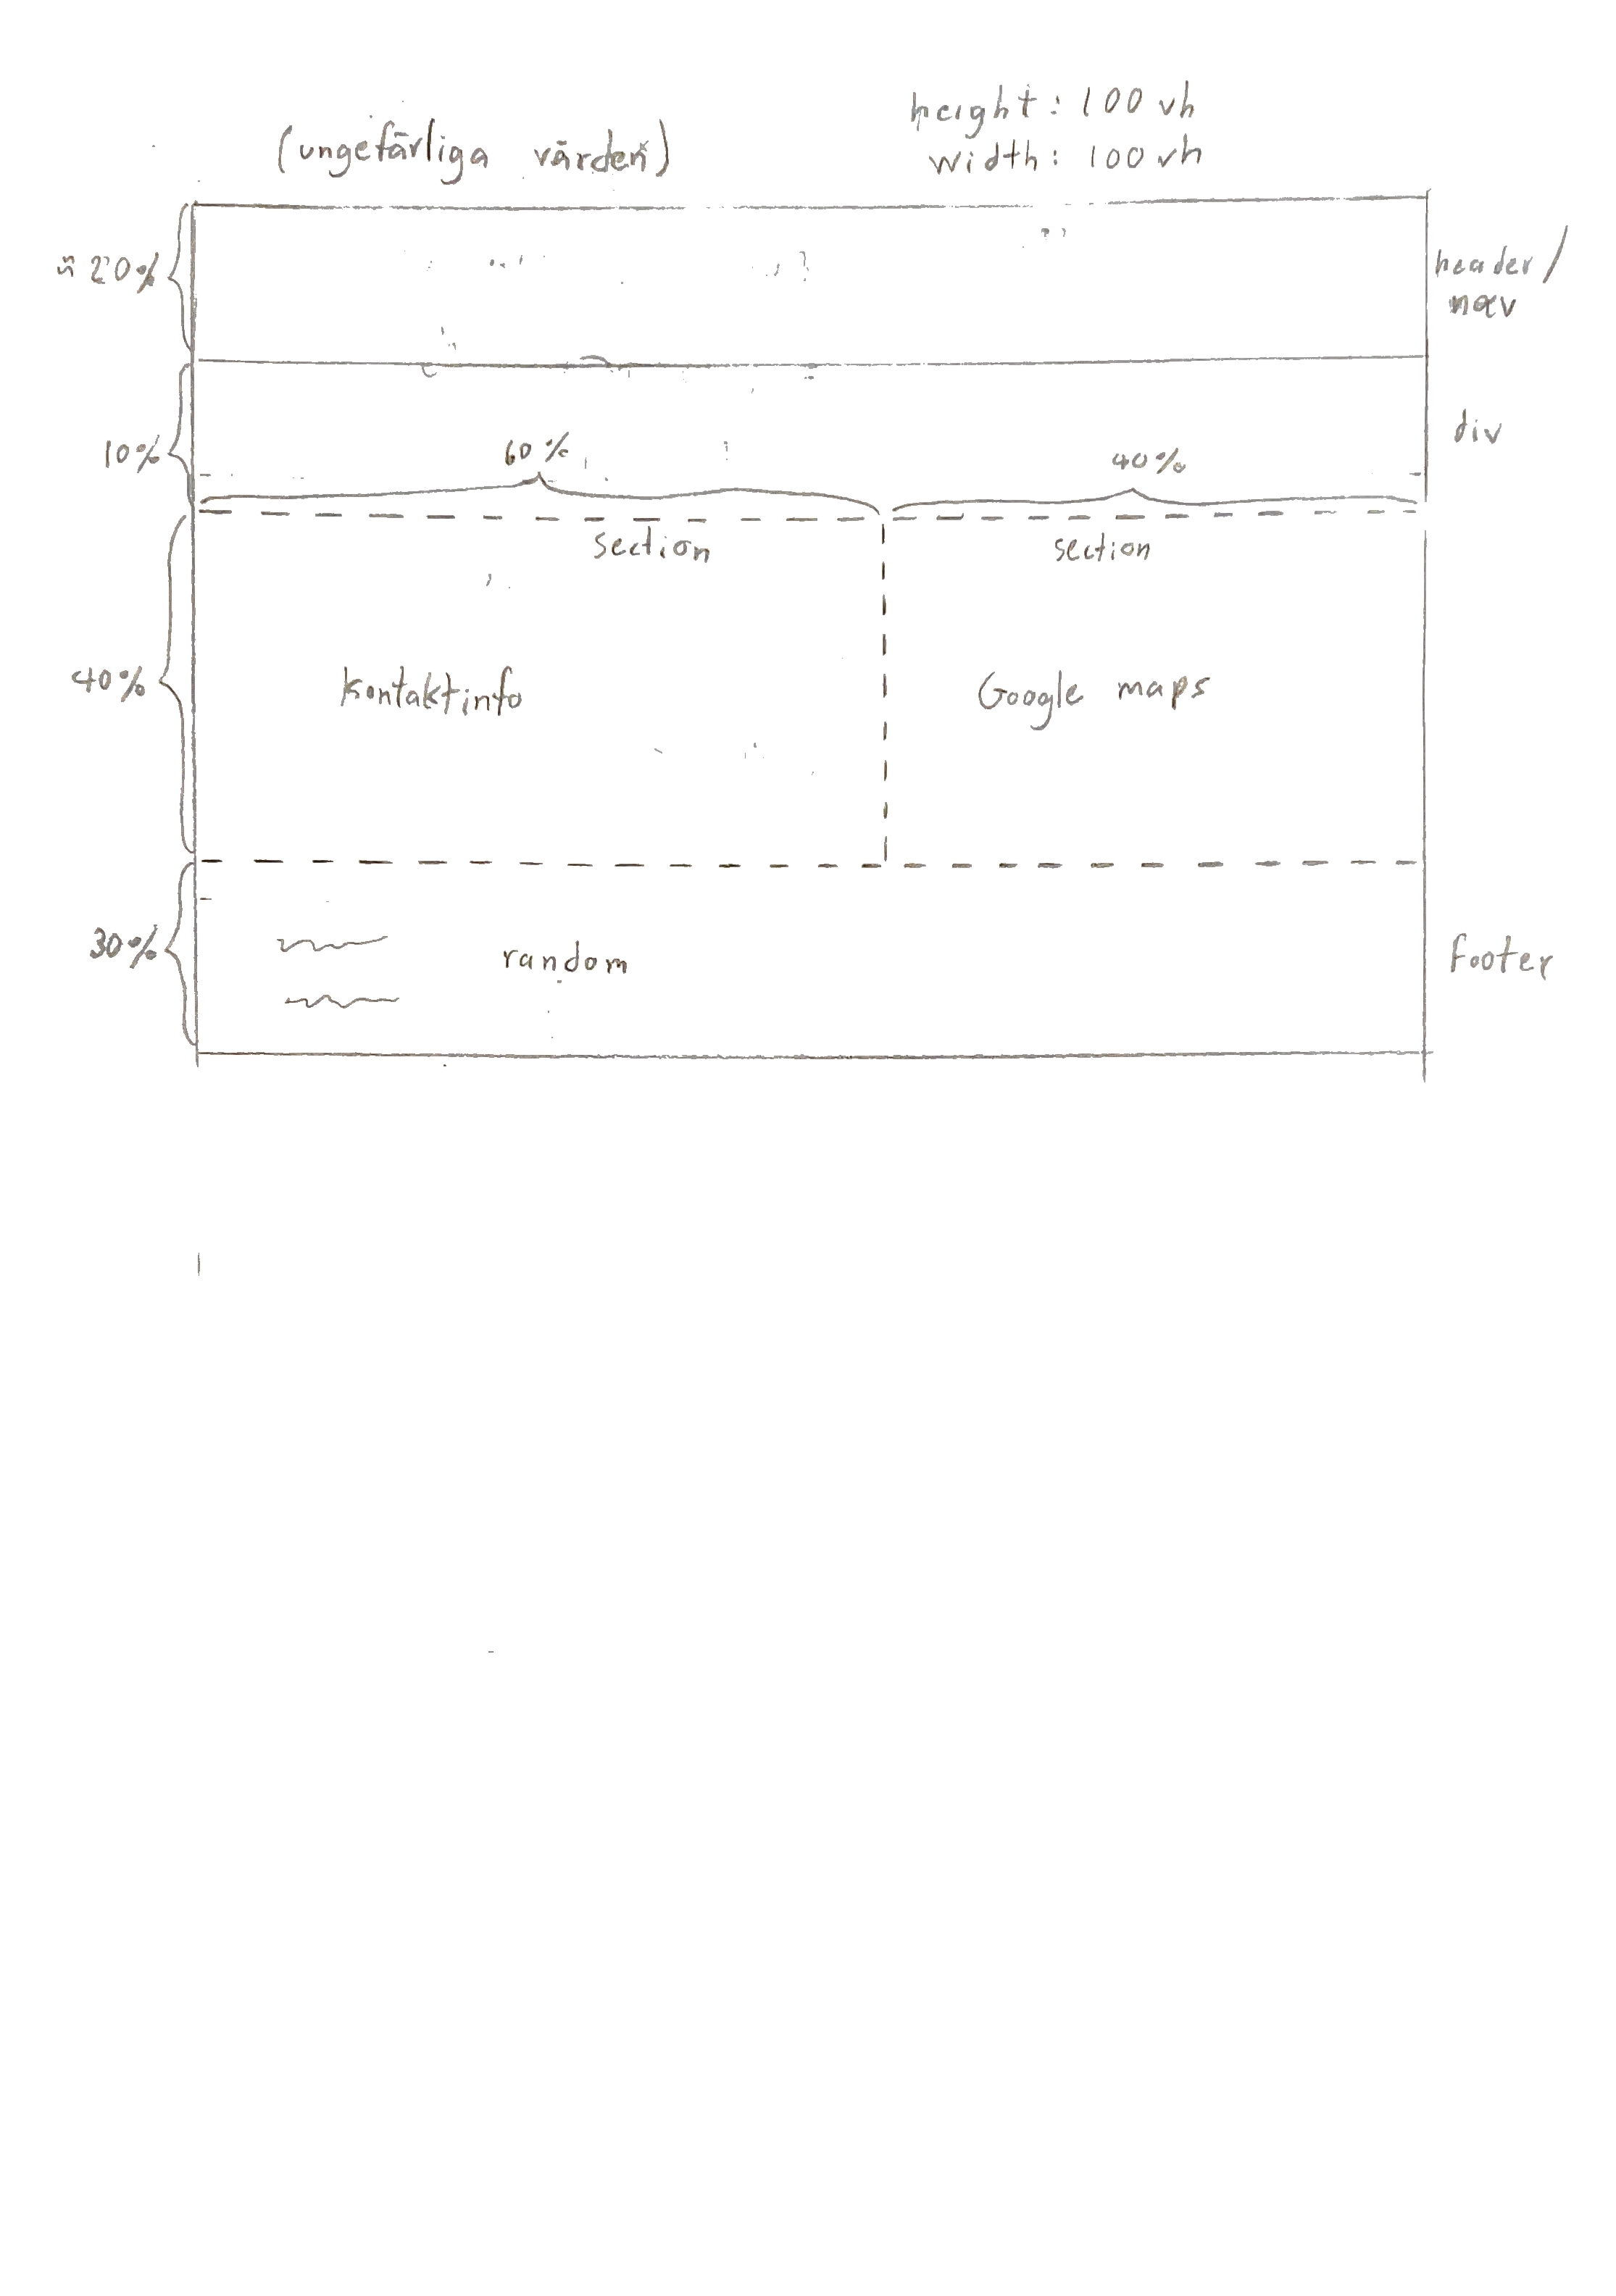 (ungefärliga värden)
height: 100 vh
width: 100 vh
20%
header/
nav
10%
div
60%
40%
section
section
40%
kontaktinfo
Google maps
30%
random
Footer